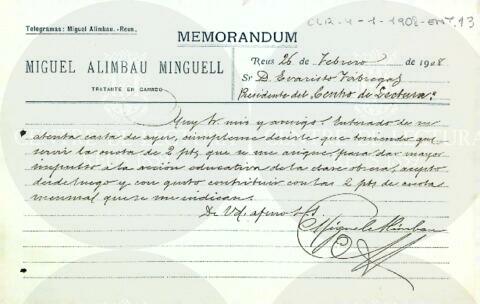 Telegramas: Miguel Alimbau.-Reus.
CLR-4-1-1908-ENT.13
MEMORANDUM
MIGUEL ALIMBAU MINGUELL
TRATANTE EN GANADO
Reus 26 de Febrero de 1908
Sr D. Evaristo Fábregas
Presidente del "Centro de Lectura"
Muy Sr mio y amigo: Enterado de su
atenta carta de ayer, cumpleme decirle que teniendo que
servir la cuota de 2 pts que se me asigne para dar mayor
impulso á la acción educativa de la clase obrera, acepto
desde luego y con gusto contribuir con las 2 pts de cuota
mensual que se me indican.
De Vd. afmo S.S.
Miguel Alimbau